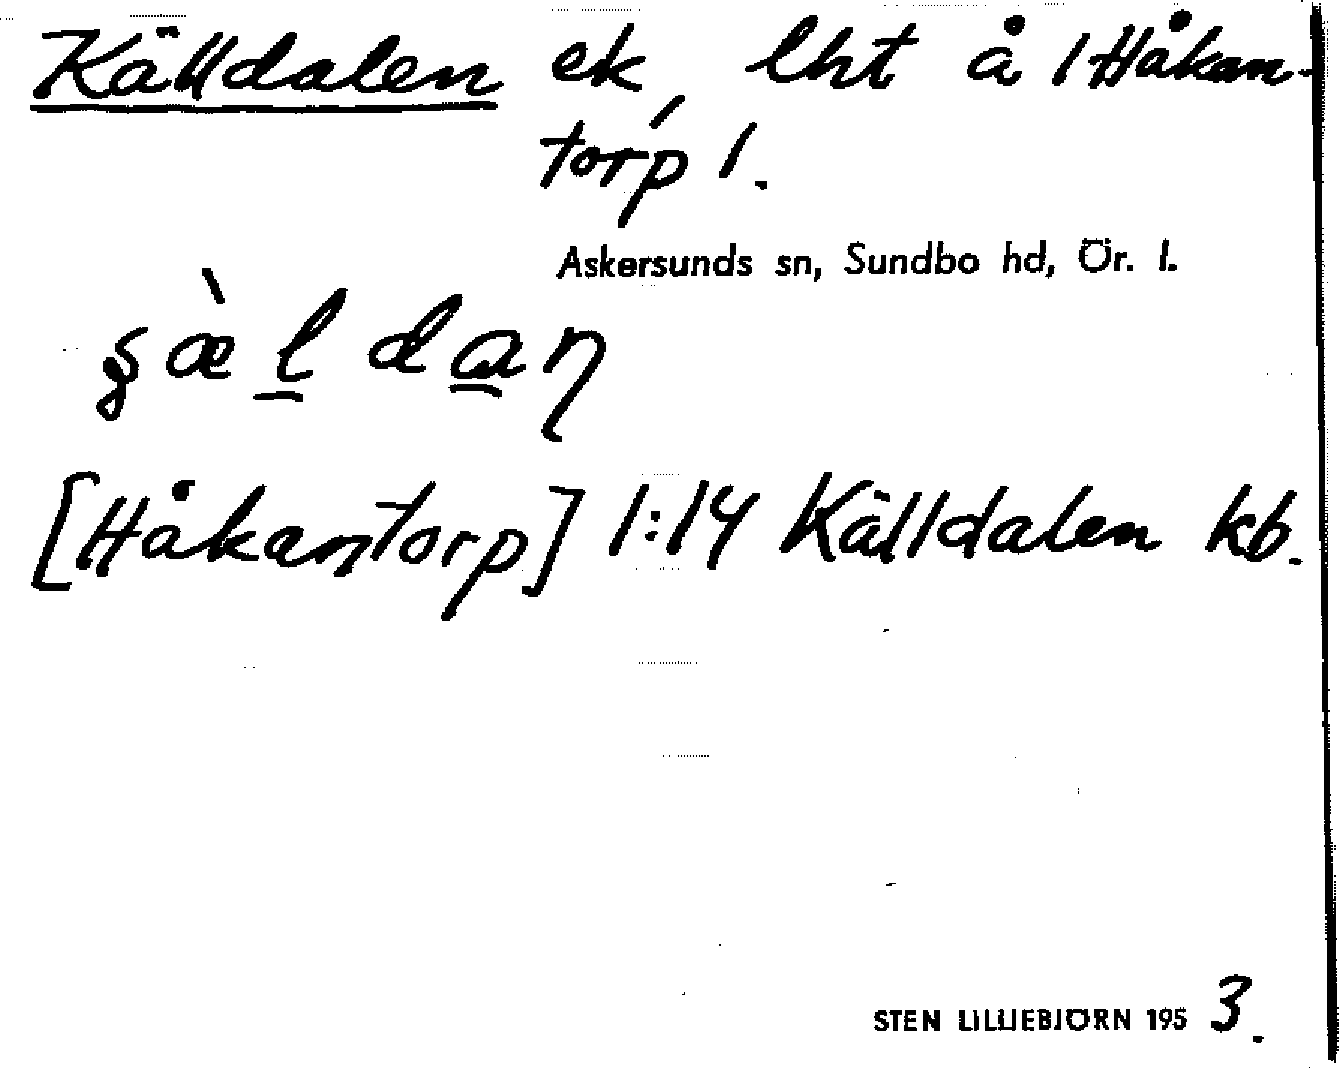 Källdalen ek, lht å /Håkan-
torp/.
Askersunds sn, Sundbo hd, Ör. l.
[Håkantorp] 1:14 Källdalen kb.
STEN LILLIEBJÖRN 1953.